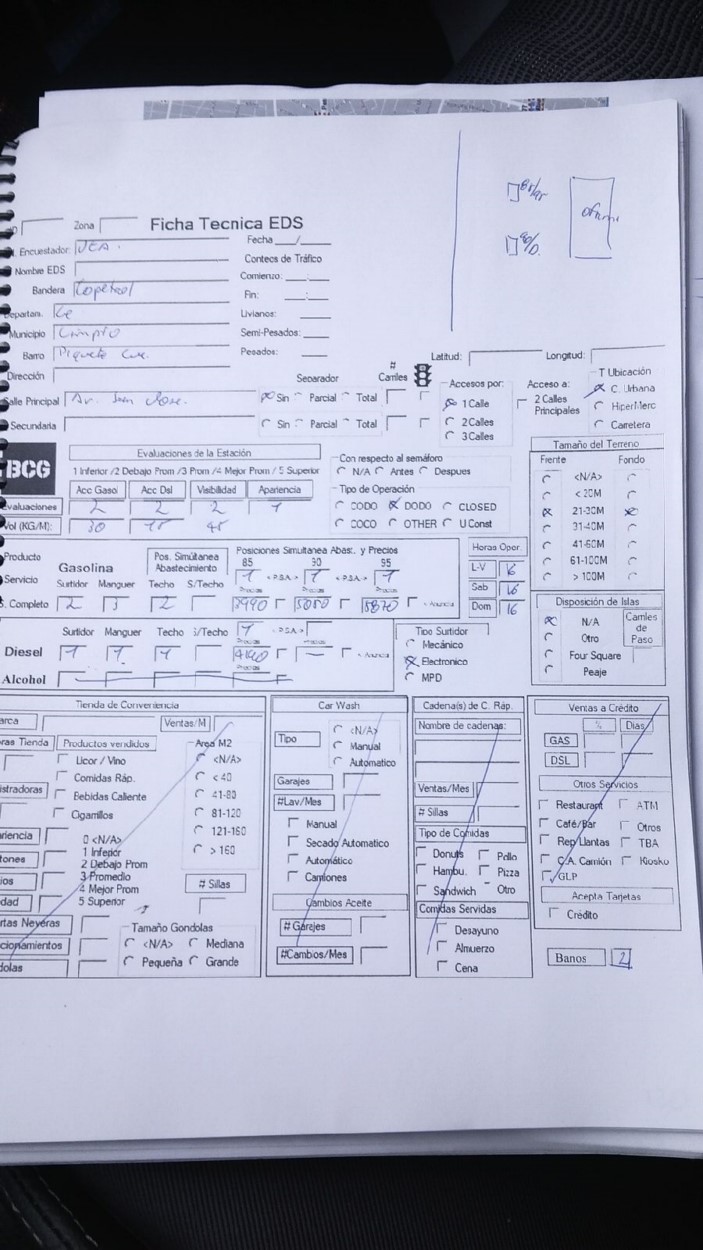 Zona
Ficha Tecnica EDS
Encuestador
Fecha
Nombre EDS
Contecs de Tráfico
Bandera
Comienzo:
Fin:
Departam.
Livianos:
Municipio
Semi-Pesados:
Barro
Pesados:
Dirección
Latitud:
Longitud:
Calle Principal Av. San Jose.
Separador
# Carriles
Sin Parcial Total
Secundaria
Sin Parcial Total
Accesos por:
1 Calle
2 Calles
3 Calles
Acceso a:
2 Calles Principales
T Ubicación
C. Urbana
HiperMerc
Carretera
BCG
Evaluaciones de la Estación
1 Inferior /2 Debajo Prom /3 Prom /4 Mejor Prom / 5 Superior
Acc Gasol Acc Dsl Visibilidad Apariencia
Evaluaciones 2 2 2 1
Vol (KG/M): 30 15 45
Con respecto al semáforo
N/A Antes Despues
Tipo de Operación
CODO DODO CLOSED
COCO OTHER U Const
Tamaño del Terreno
Frente Fondo
<N/A>
< 20M
21-30M
31-40M
41-60M
61-100M
> 100M
Producto
Servicio
Gasolina
Pos. Simúltanea Abastecimiento
Posiciones Simultanea Abast. y Precios
85 90 95
Surtidor Manguer Techo S/Techo
1 <PSA> 1 <PSA> 1
S. Completo 2 3 2
Horas Oper.
L-V 16
Sab 16
Dom 16
Surtidor Manguer Techo S/Techo
Diesel 1 1 1
Alcohol
Tipo Surtidor
Mecánico
Electronico
MPD
Disposición de Islas
N/A
Otro
Four Square
Peaje
Carriles de Paso
Tienda de Conveniencia
Ventas/M
Productos vendidos
Licor / Vino
Comidas Ráp.
Bebidas Caliente
Cigarrillos
Area M2
<N/A>
< 40
41-80
81-120
121-160
> 160
0 <N/A>
1 Inferior
2 Debajo Prom
3 Promedio
4 Mejor Prom
5 Superior
# Sillas
Tamaño Gondolas
<N/A> Mediana
Pequeña Grande
Car Wash
Tipo
<N/A>
Manual
Automatico
Garajes
#Lav/Mes
Manual
Secado Automatico
Automático
Camiones
Cambios Aceite
# Garajes
#Cambios/Mes
Cadena(s) de C. Ráp.
Nombre de cadenas:
Ventas/Mes
# Sillas
Tipo de Comidas
Donuts Pollo
Hambu. Pizza
Sandwich Otro
Comidas Servidas
Desayuno
Almuerzo
Cena
Ventas a Crédito
% Dias
GAS
DSL
Otros Servicios
Restaurant ATM
Café/Bar Otros
Rep Llantas TBA
C.A. Camión Kiosko
GLP
Acepta Tarjetas
Crédito
Banos 2